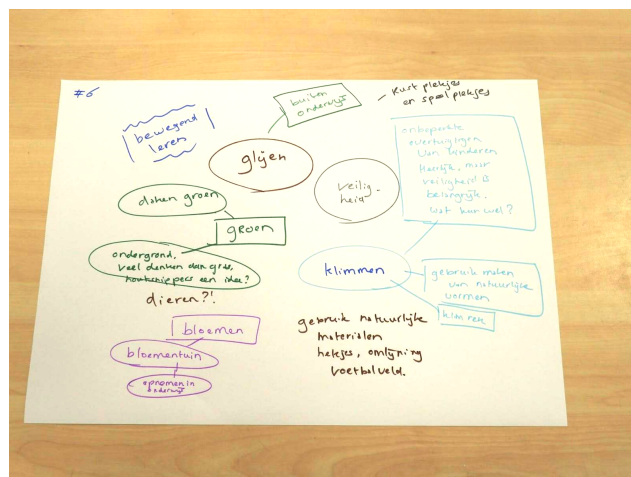 #6
buiten
onderwijs
rust plekjes
en speel plekjes
bewegend
leren
glijen
onbeperkte
overtuigingen
van kinderen
Heerlijk, maar
veiligheid is
belangrijk,
wat kan wel?
veilig-
heid
daken groen
groen
ondergrond,
veel denken dan gras,
houtsnippers een idee?
dieren?!
klimmen
gebruik maken
van natuurlijke
vormen
klim rek
bloemen
bloementuin
opnemen in
onderwijs
gebruik natuurlijke
materialen
hekjes, omlijning
voetbalveld.